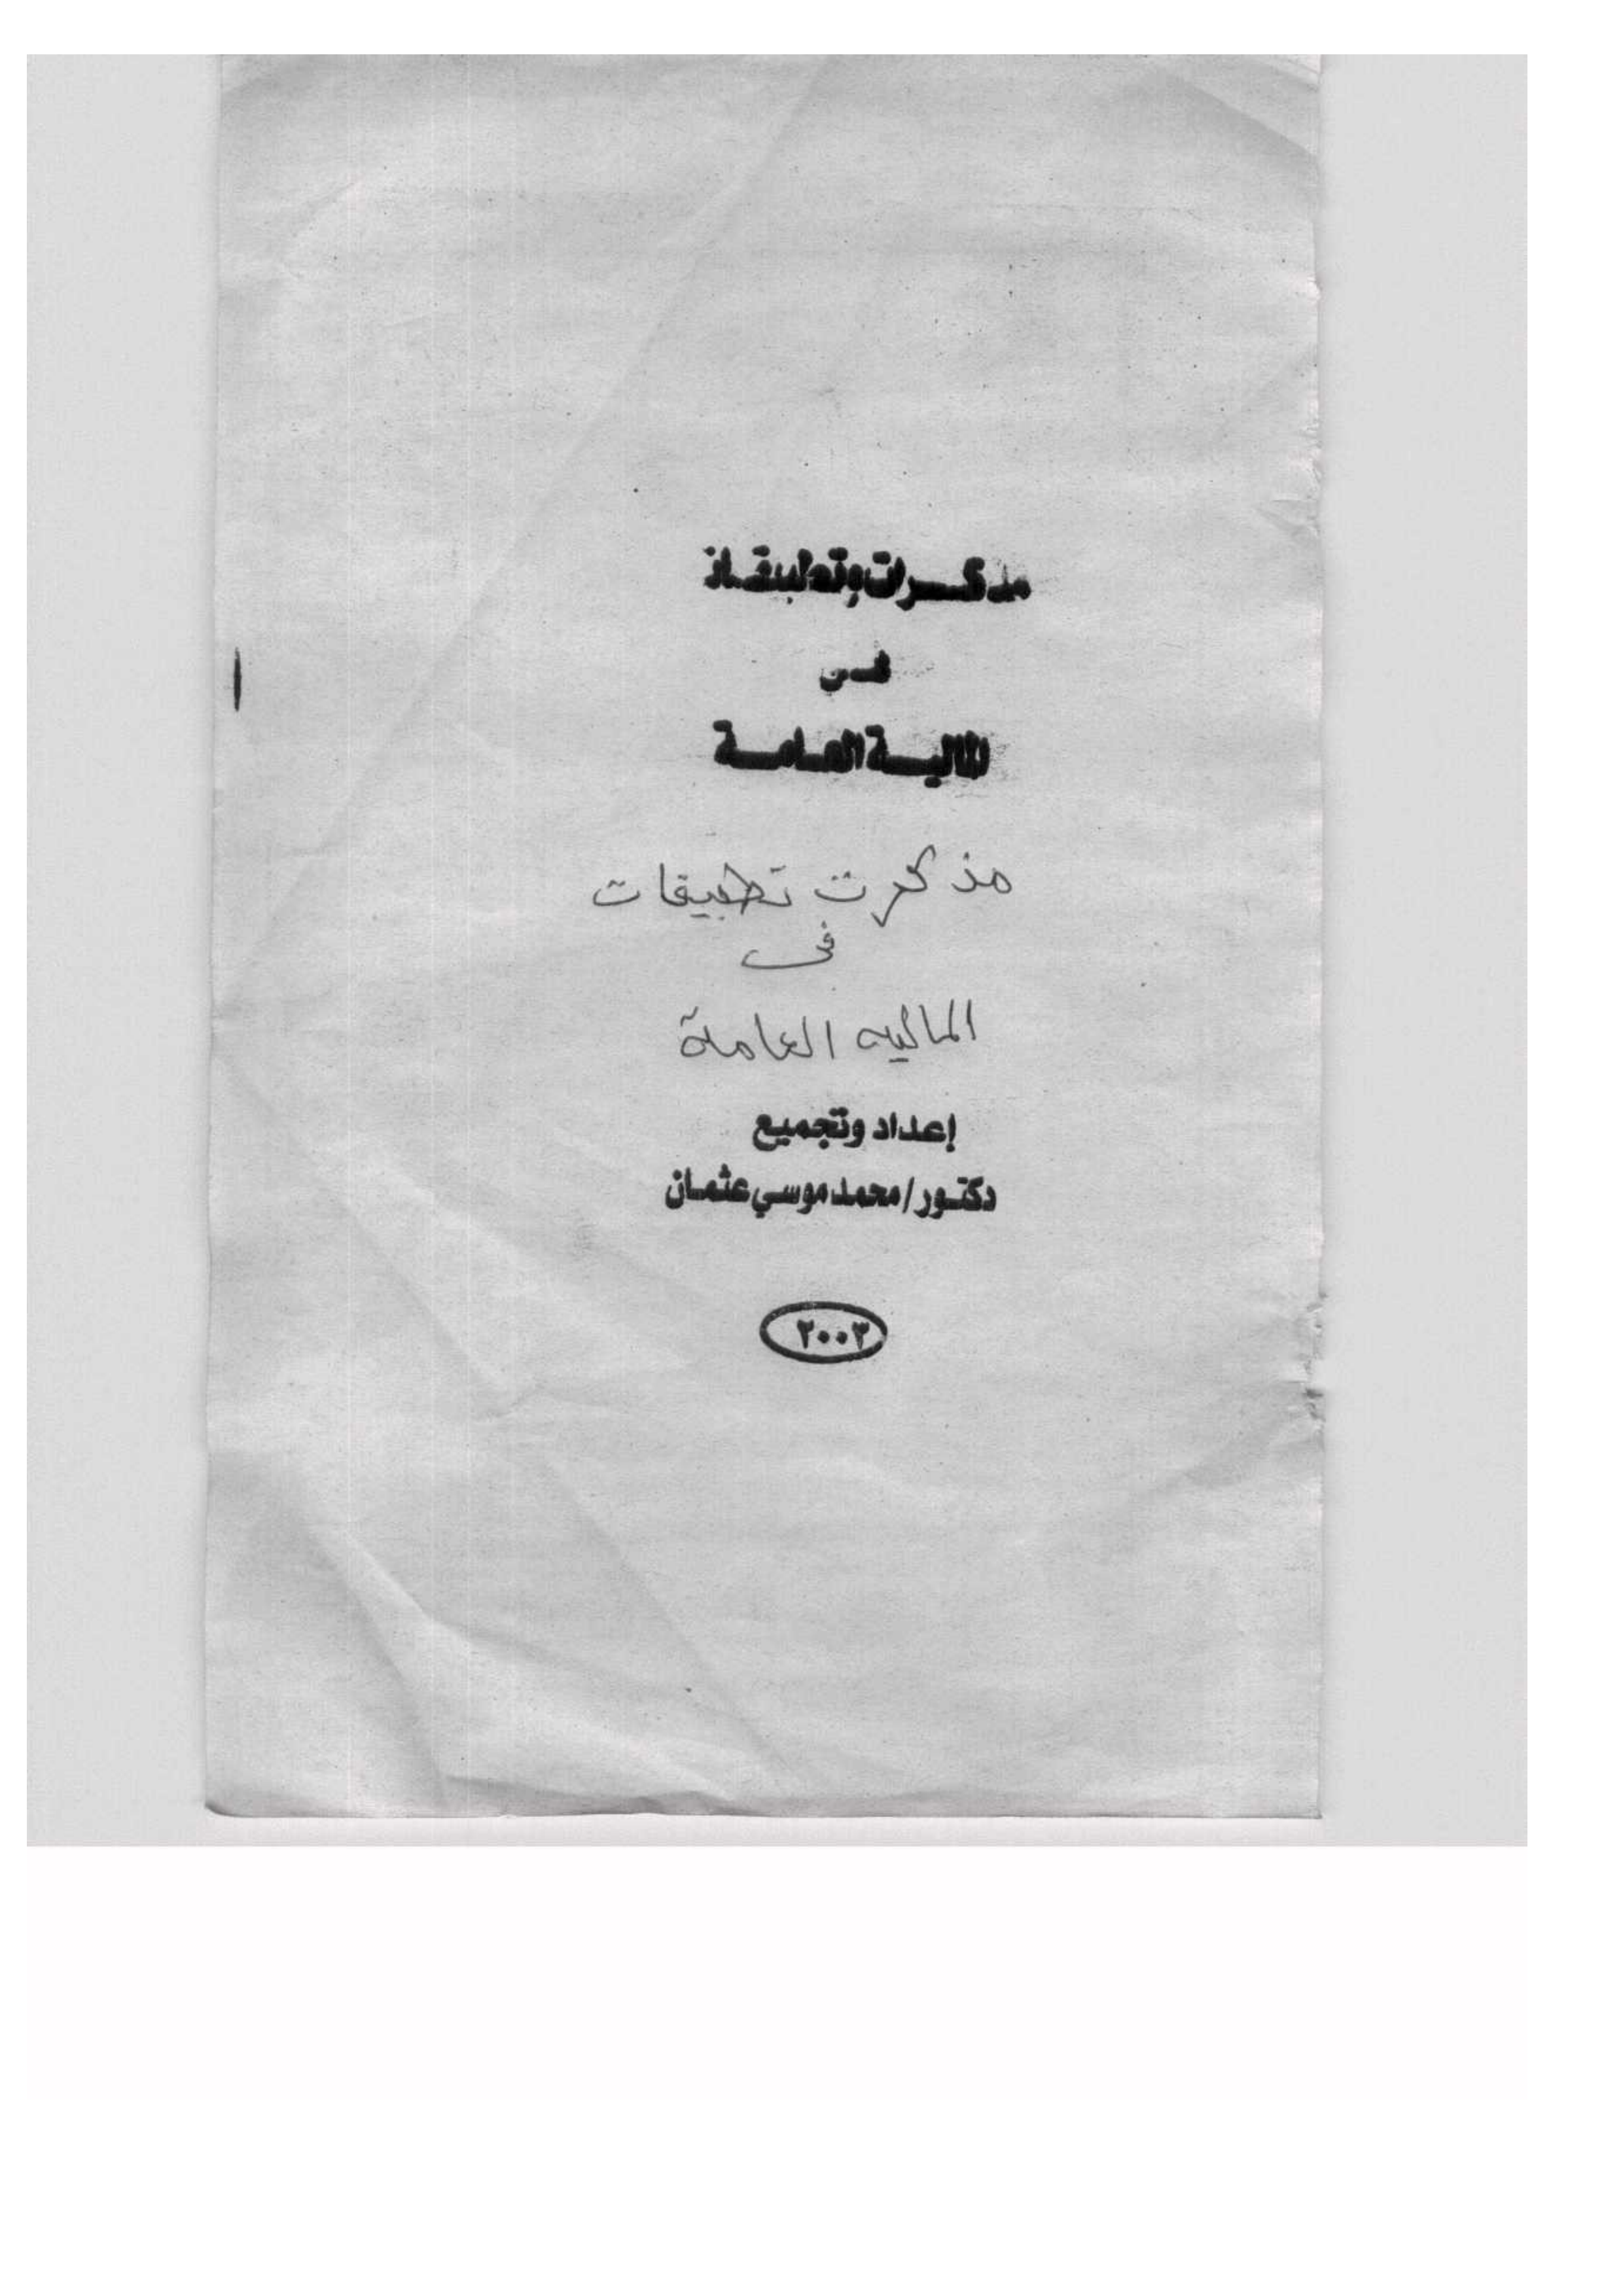 مذكـــرات وتطبيقـات
فـــي
المالیـــة العـامـــة
مذكرت تطبيقات
فى
الماليه العامة
إعداد وتجميع
دكتـور/محمد موسي عثمـان
٢٠٠٣